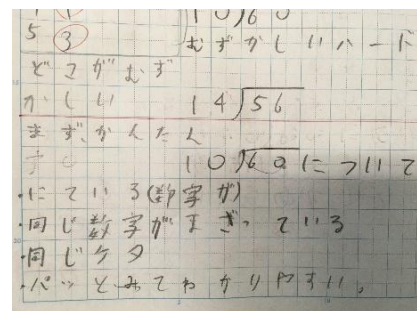 5 3 10)60
むずかしいハード
どこがむず
かしい 14)56
まず、かんたん
10)60について
・にている(数字が)
・同じ数字がまざっている
・同じケタ
・パッとみてわかりやすい。